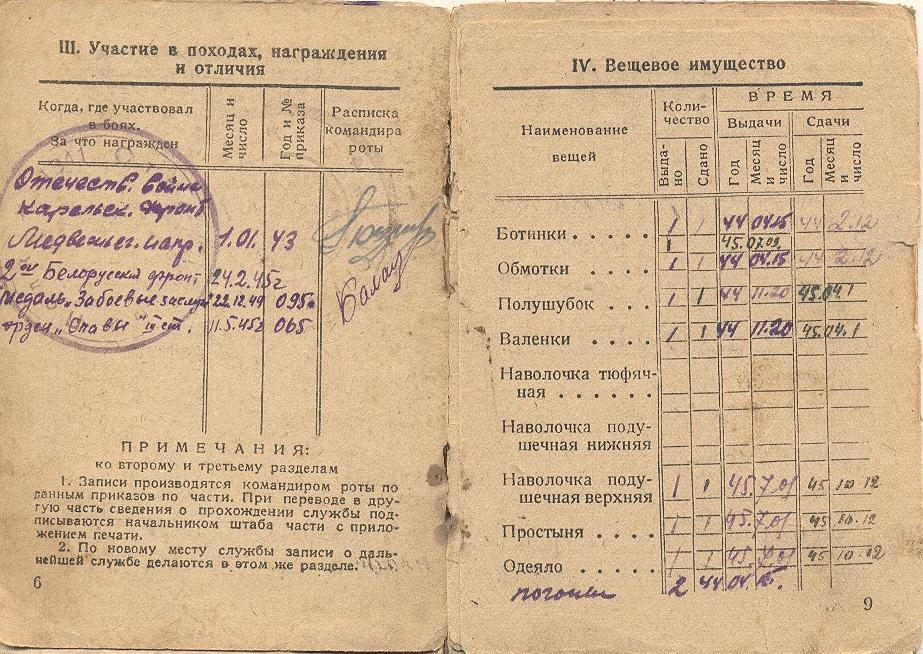 III. Участие в походах, награждения
и отличия
Когда, где участвовал
в боях.
За что награжден
Месяц и
число
Год и №
приказа
Расписка
командира
роты
Отечеств. война
Карельск. фронт
Медвежьег. напр. 1.01. 43
2ой Белорусский фронт 24.2.45г
медаль „За боевые заслуги" 22.12.44 095
орден „Славы" III ст. 11.5.45г 065
ПРИМЕЧАНИЯ:
ко второму и третьему разделам
1. Записи производятся командиром роты по
данным приказов по части. При переводе в дру-
гую часть сведения о прохождении службы под-
писываются начальником штаба части с прило-
жением печати.
2. По новому месту службы записи о даль-
нейшей службе делаются в этом же разделе.
6
IV. Вещевое имущество
Наименование
вещей
Коли-
чество
ВРЕМЯ
Выдачи
Сдачи
Выда-
но
Сдано
Год
Месяц
и
число
Год
Месяц
и
число
Ботинки . . . . . 1 1 44 04.15 44 2.12
1 45.07.09.
Обмотки . . . . 1 1 44 04.15 44 2.12
Полушубок . . . 1 1 44 11.20 45.04.1
Валенки . . . . 1 1 44 11.20 45.04.1
Наволочка тюфяч-
ная . . . . . .
Наволочка поду-
шечная нижняя
Наволочка поду-
шечная верхняя 1 1 45.7.01 45 10 12
Простыня . . . . 1 1 45.7.01 45 10.12
Одеяло . . . . 1 1 45.7.01 45 10.12
погоны 2 44 04.15.
9